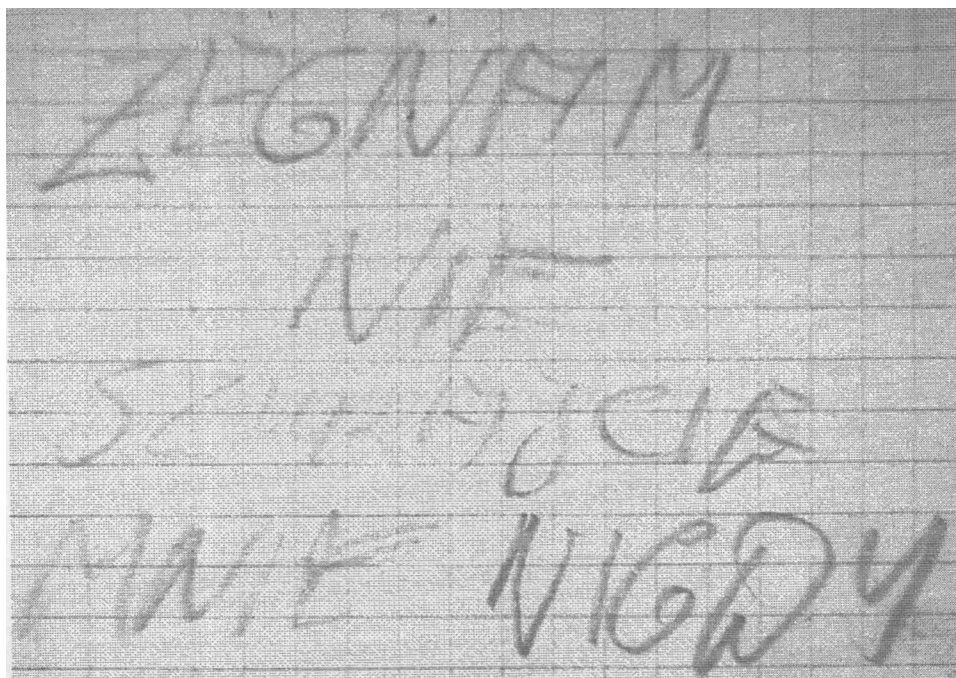 ZEGNAM
NIE
SZUKAJCIE
MNIE NIGDY